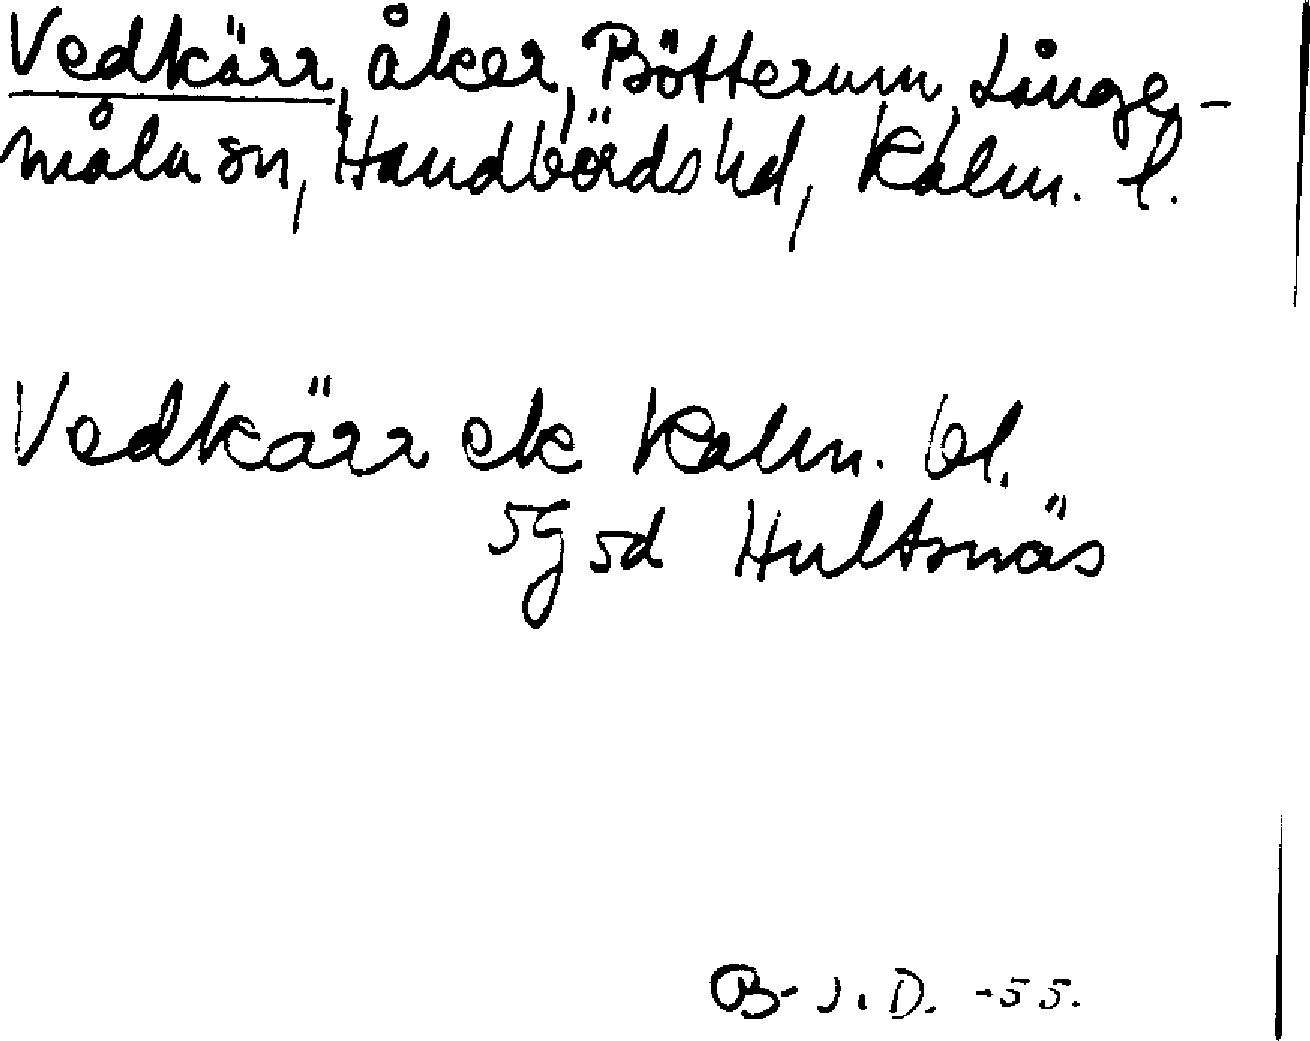 Vedkärr, åker, Bötterum, Långe-
måla sn, Handbörds hd, Kalm. l.
Vedkärr ek Kalm. bl.
5G 5d Hultsnäs
B. J. D. -55.